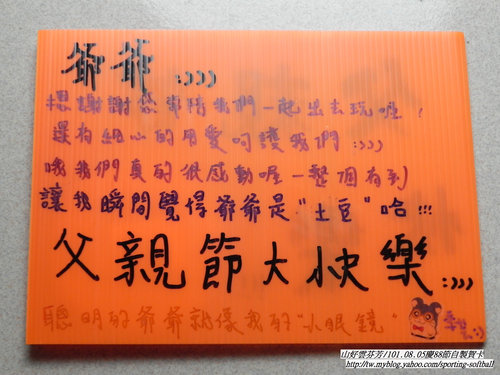 爺爺 :)))
想謝謝您常陪我們一起出去玩喔!
還有細心的用愛呵護我們 :)))
哦我們真的很感動喔一整個有到
讓我瞬間覺得爺爺是"土豆"哈!!!
父親節大快樂 :)))
聰明的爺爺就像我的"小眼鏡"
山好雲芬芳/101.08.05慶88節自製賀卡
http://tw.myblog.yahoo.com/sporting-softball